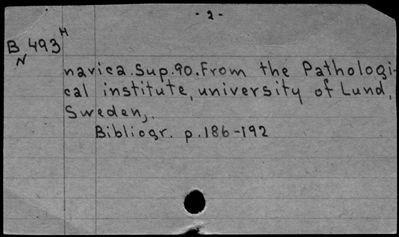 - 2 -
B 493 H
N
navica.Sup.90.From the Pathologi-
cal institute, university of Lund,
Sweden,.
Bibliogr. p.186-192